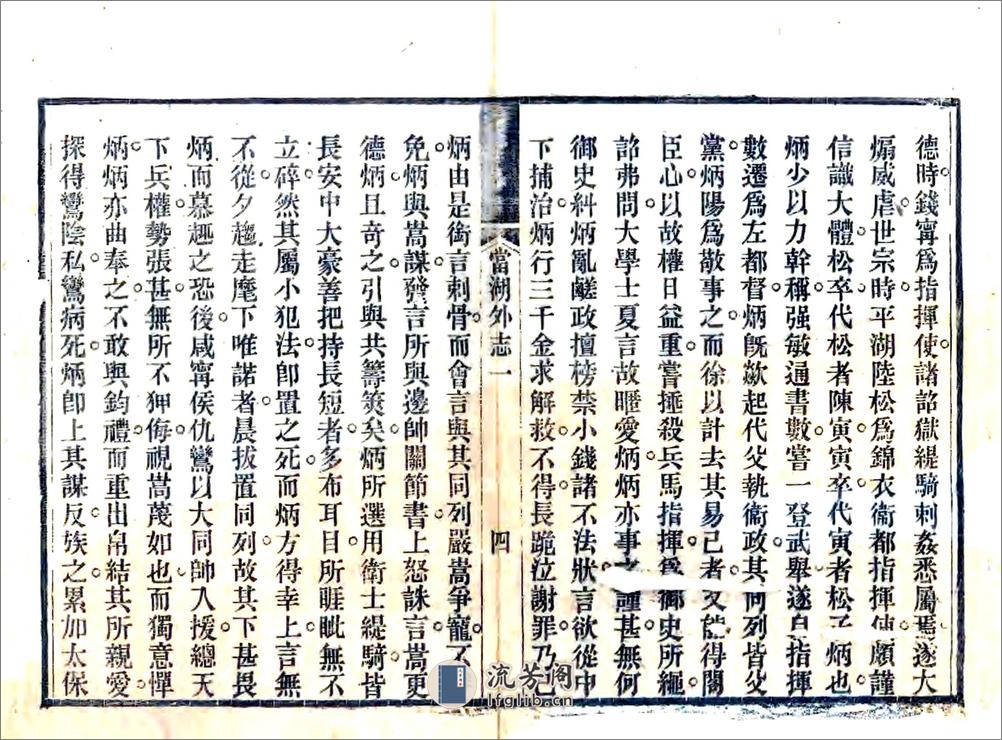 德時錢寗爲指揮使諸詔獄緹騎刺姦悉屬焉遂大
煽威虐世宗時平湖陸松爲錦衣衞都指揮使頗謹
信識大體松卒代松者陳寅寅卒代寅者松子炳也
炳少以力幹稱强敏通書數嘗一登武舉遂自指揮
數遷爲左都督炳旣歘起代父執衞政其同列皆父
黨炳陽爲敬事之而徐以計去其易己者又能得閣
臣心以故權日益重嘗捶殺兵馬指揮爲御史所繩
詔弗問大學士夏言故暱愛炳炳亦事之謹甚無何
御史糾炳亂鹺政擅榜禁小錢諸不法狀言欲從中
下捕治炳行三千金求解救不得長跪泣謝罪乃已
當湖外志一
四
炳由是銜言刺骨而會言與其同列嚴嵩爭寵不
免炳與嵩謀發言所與邊帥關節書上怒誅言嵩更
德炳且奇之引與共籌筴矣炳所選用衞士緹騎皆
長安中大豪善把持長短者多布耳目所睚眦無不
立碎然其屬小犯法卽置之死而炳方得幸上言無
不從夕趨走麾下唯諾者晨拔置同列故其下甚畏
炳而慕趣之恐後咸寗侯仇鸞以大同帥入援總天
下兵權勢張甚無所不狎侮視嵩蔑如也而獨意憚
炳炳亦曲奉之不敢與鈞禮而重出帛結其所親愛
探得鸞陰私鸞病死炳卽上其謀反族之累加太保
流芳閣
lfglib.cn